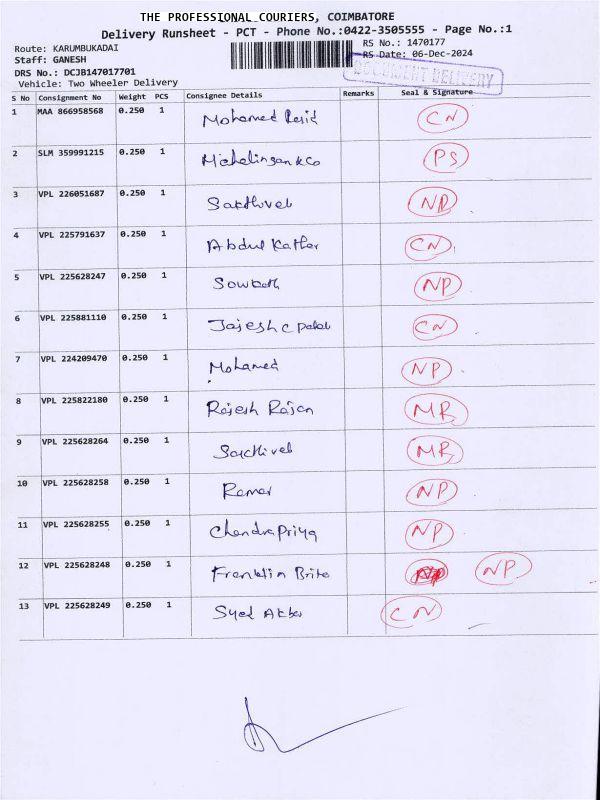 THE PROFESSIONAL COURIERS, COIMBATORE
Delivery Runsheet - PCT - Phone No.:0422-3505555 - Page No.:1
Route: KARUMBUKADAI
RS No.: 1470177
Staff: GANESH
RS Date: 06-Dec-2024
DRS No.: DCJB147017701
DOCUMENT DELIVERY
Vehicle: Two Wheeler Delivery
S No Consignment No Weight PCS Consignee Details Remarks Seal & Signature
1 MAA 866958568 0.250 1 Mohamed Rasid CN
2 SLM 359991215 0.250 1 PS
3 VPL 226051687 0.250 1 Sakthivel NP
4 VPL 225791637 0.250 1 Abdul Kather CN
5 VPL 225628247 0.250 1 NP
6 VPL 225881110 0.250 1 Jajesh c patel CN
7 VPL 224209470 0.250 1 Mohamed NP
8 VPL 225822180 0.250 1 Rajesh Rajan MR
9 VPL 225628264 0.250 1 Sakthivel MR
10 VPL 225628258 0.250 1 Ramar NP
11 VPL 225628255 0.250 1 Chandrapriya NP
12 VPL 225628248 0.250 1 Franklin Brito NP
13 VPL 225628249 0.250 1 Syed Akbar CN